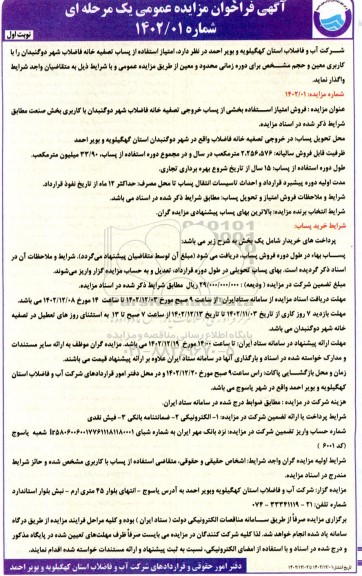 آگهی فراخوان مزایده عمومی یک مرحله ای
شماره ۱۴۰۲/۰۱
نوبت اول
شرکت آب و فاضلاب استان کهگیلویه و بویر احمد در نظر دارد، امتیاز استفاده از پساب تصفیه خانه فاضلاب شهر دوگنبدان را با
کاربری معین و حجم مشخص برای دوره زمانی محدود و معین از طریق مزایده عمومی و با شرایط ذیل به متقاضیان واجد شرایط
واگذار نماید.
شماره مزایده: ۱۴۰۲/۰۱
عنوان مزایده : فروش امتیاز استفاده بخشی از پساب خروجی تصفیه خانه فاضلاب شهر دوگنبدان با کاربری بخش صنعت مطابق
شرایط ذکر شده در اسناد مزایده.
محل تحویل پساب: در خروجی تصفیه خانه فاضلاب واقع در شهر دوگنبدان استان کهگیلویه و بویر احمد
ظرفیت قابل فروش سالیانه: ۲،۲۵۶،۵۷۶ مترمکعب در سال و در مجموع دوره استفاده از پساب، ۳۳/۹۰ میلیون مترمکعب.
طول دوره استفاده از پساب: ۱۵ سال از تاریخ شروع بهره برداری تجاری.
مدت اولیه دوره پیشبرد قرارداد و احداث تاسیسات انتقال پساب تا محل مصرف: حداکثر ۱۲ ماه از تاریخ نفوذ قرارداد.
شرایط و ملاحظات فروش امتیاز و تحویل پساب: مطابق شرایط ذکر شده در اسناد می باشد.
شرایط انتخاب برنده مزایده: بالاترین بهای پساب پیشنهادی مزایده گران.
شرایط خرید پساب:
پرداخت های خریدار شامل یک بخش به شرح زیر می باشد:
پساب بهاء در طول دوره فروش پساب، دریافت می شود (مبلغ آن توسط متقاضیان پیشنهاد می‌گردد). شرایط و ملاحظات آن در
اسناد ذکر گردیده است. بهای پساب تحویلی در طول دوره قرارداد، تعدیل و به حساب مزایده گزار واریز می‌شوند.
مبلغ تضمین شرکت در مزایده ( ودیعه) : ۲۹/۰۰۰/۰۰۰/۰۰۰ ریال مطابق شرایط ذکر شده در اسناد مزایده.
مهلت دریافت اسناد مزایده از سامانه ستادایران: از ساعت ۹ صبح مورخ ۱۴۰۲/۱۲/۰۳ تا ساعت ۱۴ مورخ ۱۴۰۲/۱۲/۰۸ می باشد.
مهلت بازدید ۷ روز کاری از تاریخ تا تاریخ ۱۴۰۲/۱۲/۱۲ از ساعت ۷ صبح تا ۱۳ به استثنای روز های تعطیل در تصفیه
خانه شهر دوگنبدان می باشد.
مهلت ارائه پیشنهاد در سامانه ستاد ایران: تا ساعت ۱۴:۰۰ مورخ ۱۴۰۲/۱۲/۱۹ می باشد. مزایده گران موظف به ارائه سایر مستندات
و مدارک خواسته شده در اسناد و بارگذاری آنها در سامانه ستاد ایران علاوه بر ارائه پیشنهاد قیمت می باشند.
زمان و محل بازگشایی پاکات: راس ساعت ۹ صبح مورخ ۱۴۰۲/۱۲/۲۰ و در محل دفتر امور قراردادهای شرکت آب و فاضلاب استان
کهگیلویه و بویر احمد واقع در شهر یاسوج می باشد.
هزینه شرکت در مزایده : مطابق ضوابط درج شده در سامانه ستاد ایران.
شرایط پرداخت یا ارائه تضمین شرکت در مزایده: ۱- الکترونیکی ۲- ضمانتنامه بانکی ۳- فیش نقدی
شماره حساب واریز تضمین شرکت در مزایده: نزد بانک مهر ایران به شماره شبای شعبه یاسوج
(کد ۶۰۰۱ )
شرایط اولیه مزایده گران واجد شرایط: اشخاص حقیقی و حقوقی، متقاضی استفاده از پساب با کاربری مشخص شده و حائز شرایط
مندرج در اسناد مزایده.
مزایده گزار: شرکت آب و فاضلاب استان کهگیلویه وبویر احمد به آدرس یاسوج - انتهای بلوار ۴۵ متری ارم - نبش بلوار استاندارد
شماره تلفن: ۲۱ - ۳۳۳۴۱۱۱۹ - ۰۷۴
برگزاری مزایده صرفاً از طریق سامانه مناقصات الکترونیکی دولت ( ستاد ایران ) بوده و کلیه مراحل فرایند مزایده از طریق درگاه
سامانه یاد شده انجام خواهد شد. لذا کلیه شرکت کنندگان در مزایده می بایست صرفاً ظرف مهلت‌های تعیین شده در پایگاه مذکور
و درج شده در اسناد و با استفاده از امضای الکترونیکی، نسبت به ثبت پیشنهاد و ارائه مستندات خواسته شده اقدام نمایند.
دفتر امور حقوقی و قراردادهای شرکت آب و فاضلاب استان کهگیلویه و بویر احمد